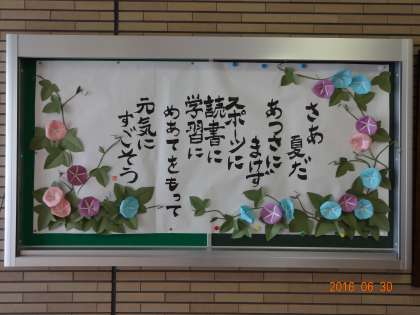 さあ
夏だ
あつさに
まけず
スポーツに
読書に
学習に
めあてをもって
元気に
すごそう
2016 06 30